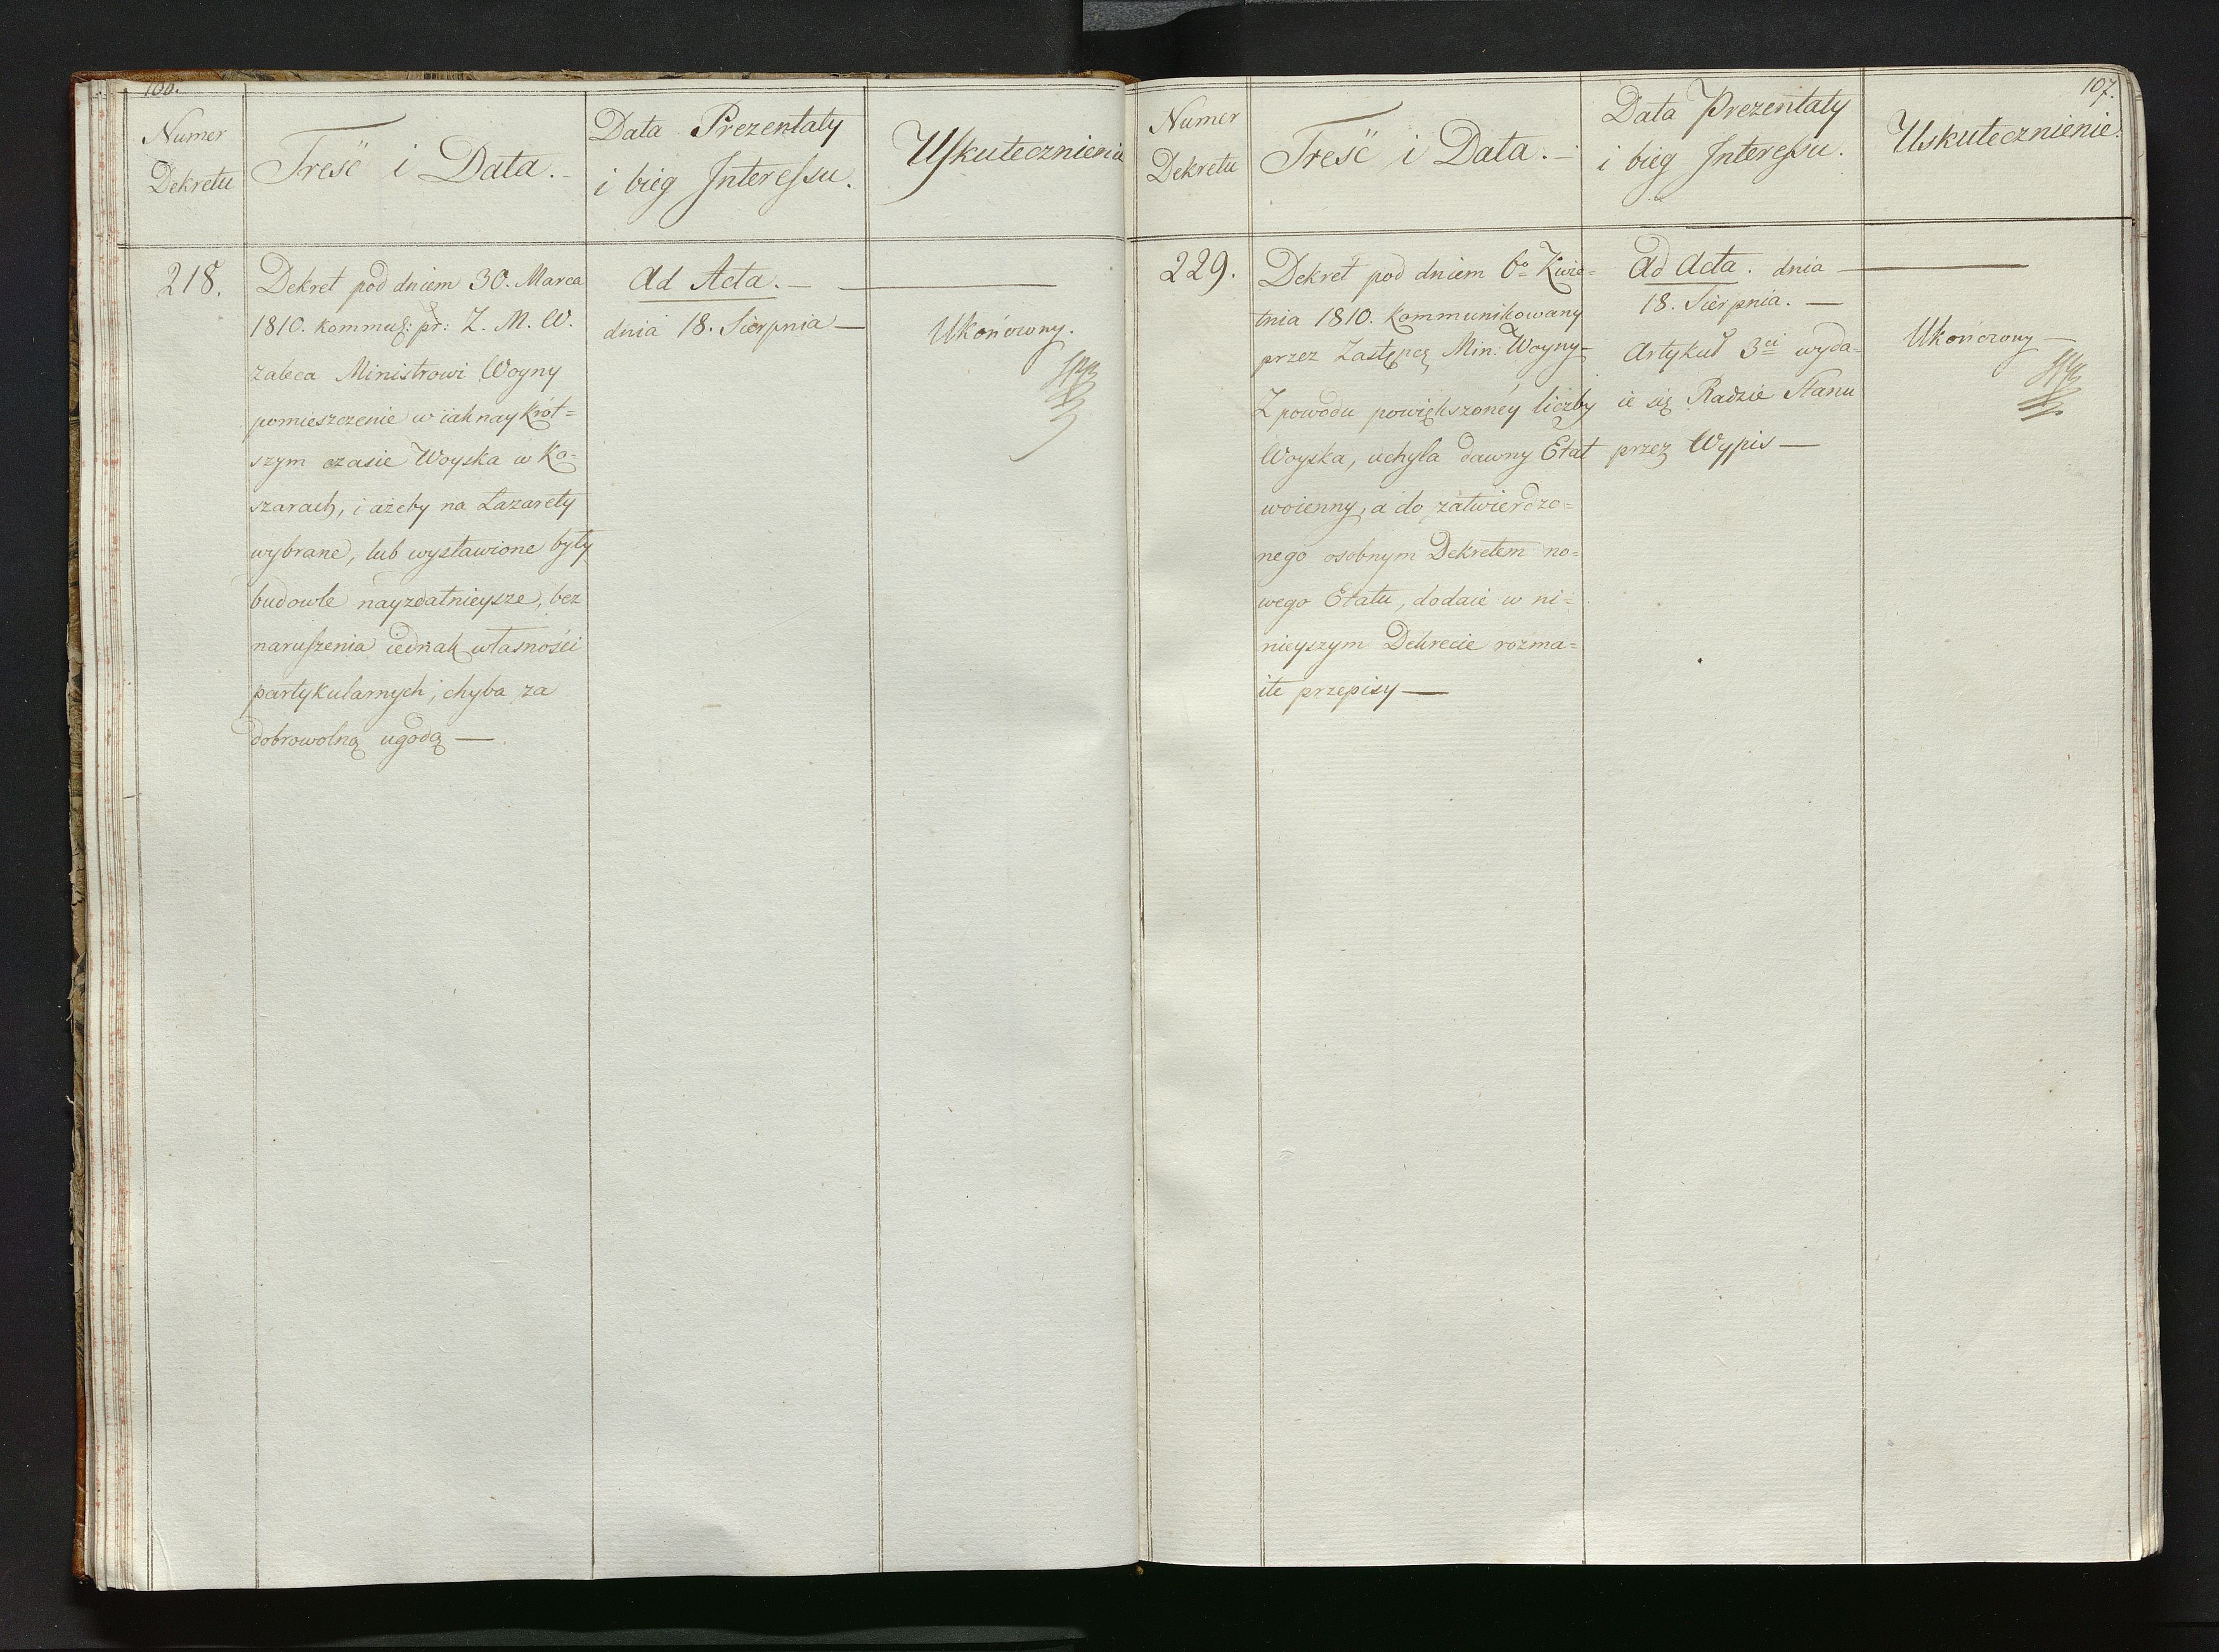 106.
Numer
Dekretu
Treść i Data.
Data Prezentaty
i bieg Interessu.
Uskutecznienie
218.
Dekret pod dniem 30. Marca
1810. kommuq: pr: Z. M. W.
zaleca Ministrowi Woyny
pomieszczenie w iak nay krót=
szym czasie Woyska w Ko=
szarach, i ażeby na Lazarety
wybrane, lub wystawione były
budowle nayzdatnieysze, bez
naruszenia iednak własności
partykularnych, chyba za
dobrowolną ugodą —
Ad Acta. —
dnia 18. Sierpnia —
Ukończony.
107.
Numer
Dekretu
Treść i Data. —
Data Prezentaty
i bieg Interessu.
Uskutecznienie.
229.
Dekret pod dniem 6o Kwie=
tnia 1810. kommunikowany
przez Zastępcę Min: Woyny —
Z powodu powiększonéy liczby
Woyska, uchyla dawny Etat
woienny, a do zatwierdzo=
nego osobnym Dekretem no=
wego Etatu, dodaie w ni=
nieyszym Dekrecie rozma=
ite przepisy —
Ad Acta. dnia —
18. Sierpnia. —
Artykuł 3ci wyda=
ie się Radzie Stanu
przez Wypis —
Ukończony —